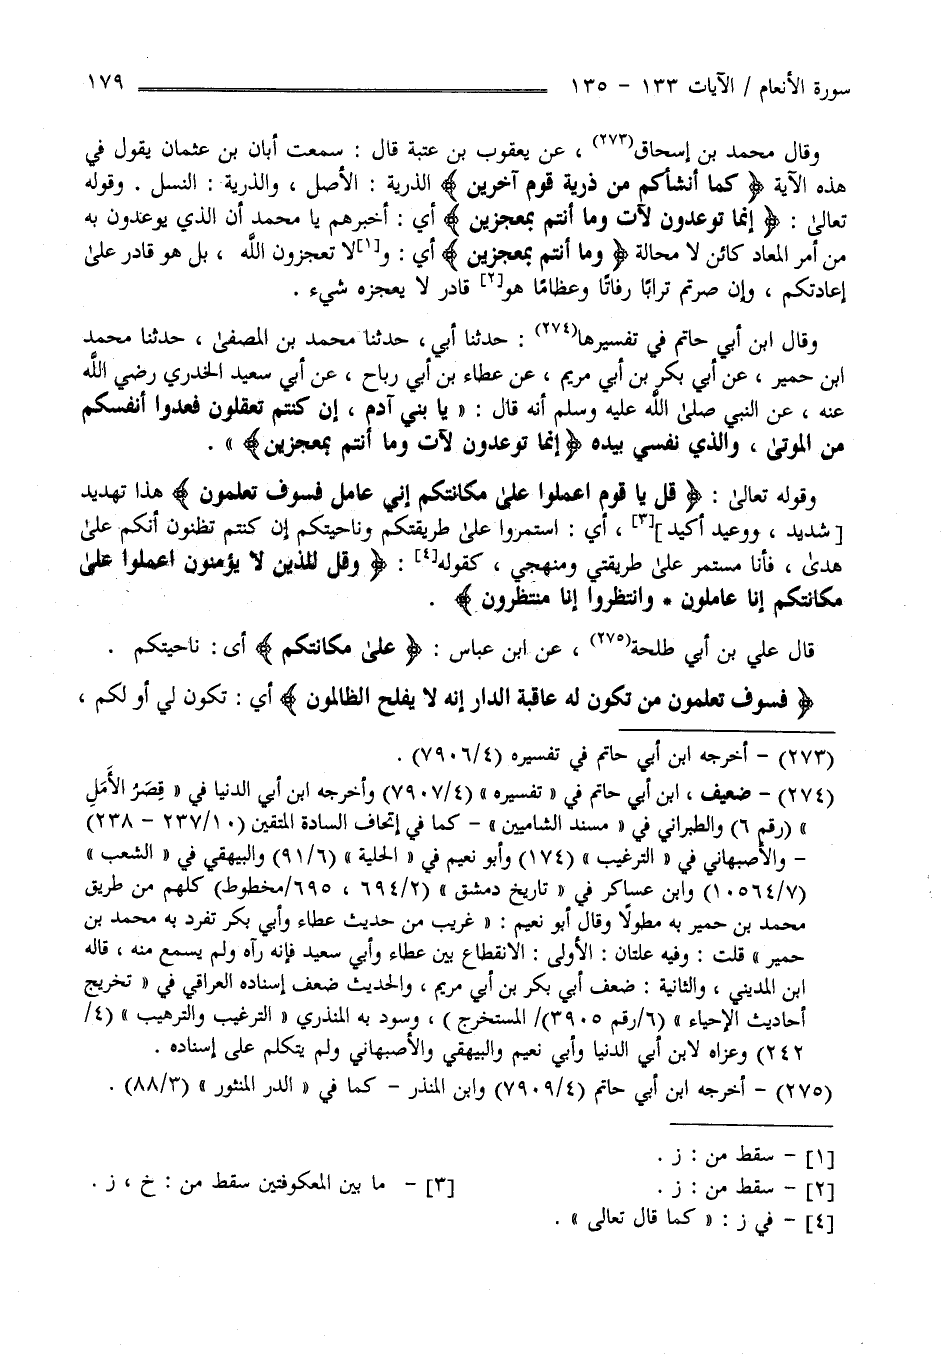 سورة الأنعام / الآيات ١٣٣ - ١٣٥ ١٧٩
وقال محمد بن إسحاق(٢٧٣) ، عن يعقوب بن عتبة قال : سمعت أبان بن عثمان يقول في
هذه الآية ﴿ كما أنشأكم من ذرية قوم آخرين ﴾ الذرية : الأصل ، والذرية : النسل . وقوله
تعالىٰ : ﴿ إنما توعدون لآت وما أنتم بمعجزين ﴾ أي : أخبرهم يا محمد أن الذي يوعدون به
من أمر المعاد كائن لا محالة ﴿ وما أنتم بمعجزين ﴾ أي : و[١]لا تعجزون اللَّه ، بل هو قادر علىٰ
إعادتكم ، وإن صرتم ترابًا رفاتًا وعظامًا هو[٢] قادر لا يعجزه شيء .
وقال ابن أبي حاتم في تفسيرها(٢٧٤) : حدثنا أبي، حدثنا محمد بن المصفىٰ ، حدثنا محمد
ابن حمير ، عن أبي بكر بن أبي مريم ، عن عطاء بن أبي رباح ، عن أبي سعيد الخدري رضي اللَّه
عنه ، عن النبي صلىٰ اللَّه عليه وسلم أنه قال : « يا بني آدم ، إن كنتم تعقلون فعدوا أنفسكم
من الموتىٰ ، والذي نفسي بيده ﴿إنما توعدون لآت وما أنتم بمعجزين﴾ » .
وقوله تعالىٰ : ﴿ قل يا قوم اعملوا علىٰ مكانتكم إني عامل فسوف تعلمون ﴾ هذا تهديد
[شديد ، ووعيد أكيد][٣] ، أي : استمروا علىٰ طريقتكم وناحيتكم إن كنتم تظنون أنكم علىٰ
هدىٰ ، فأنا مستمر علىٰ طريقتي ومنهجي ، كقوله[٤] : ﴿ وقل للذين لا يؤمنون اعملوا علىٰ
مكانتكم إنا عاملون * وانتظروا إنا منتظرون ﴾ .
قال علي بن أبي طلحة(٢٧٥) ، عن ابن عباس : ﴿ علىٰ مكانتكم ﴾ أى : ناحيتكم .
﴿ فسوف تعلمون من تكون له عاقبة الدار إنه لا يفلح الظالمون ﴾ أي : تكون لي أو لكم ،
(٢٧٣) - أخرجه ابن أبي حاتم في تفسيره (٤/٧٩٠٦) .
(٢٧٤) - ضعيف ، ابن أبي حاتم في « تفسيره » (٤/٧٩٠٧) وأخرجه ابن أبي الدنيا في « قِصَرُ الأَمَلِ
» (رقم ٦) والطبراني في « مسند الشاميين » - كما في إتحاف السادة المتقين (١٠/٢٣٧ - ٢٣٨)
- والأصبهاني في « الترغيب » (١٧٤) وأبو نعيم في « الحلية » (٦/٩١) والبيهقي في « الشعب »
(٧/١٠٥٦٤) وابن عساكر في « تاريخ دمشق » (٢/٦٩٤ ، ٦٩٥/مخطوط) كلهم من طريق
محمد بن حمير به مطولًا وقال أبو نعيم : « غريب من حديث عطاء وأبي بكر تفرد به محمد بن
حمير » قلت : وفيه علتان : الأولى : الانقطاع بين عطاء وأبي سعيد فإنه رآه ولم يسمع منه ، قاله
ابن المديني ، والثانية : ضعف أبي بكر بن أبي مريم ، والحديث ضعف إسناده العراقي في « تخريج
أحاديث الإحياء » (٦/رقم ٣٩٠٥)/ المستخرج ) ، وسود به المنذري « الترغيب والترهيب » (٤/
٢٤٢) وعزاه لابن أبي الدنيا وأبي نعيم والبيهقي والأصبهاني ولم يتكلم على إسناده .
(٢٧٥) - أخرجه ابن أبي حاتم (٤/٧٩٠٩) وابن المنذر - كما في « الدر المنثور » (٣/٨٨) .
[١] - سقط من : ز .
[٢] - سقط من : ز . [٣] - ما بين المعكوفتين سقط من : خ ، ز .
[٤] - في ز : « كما قال تعالى » .